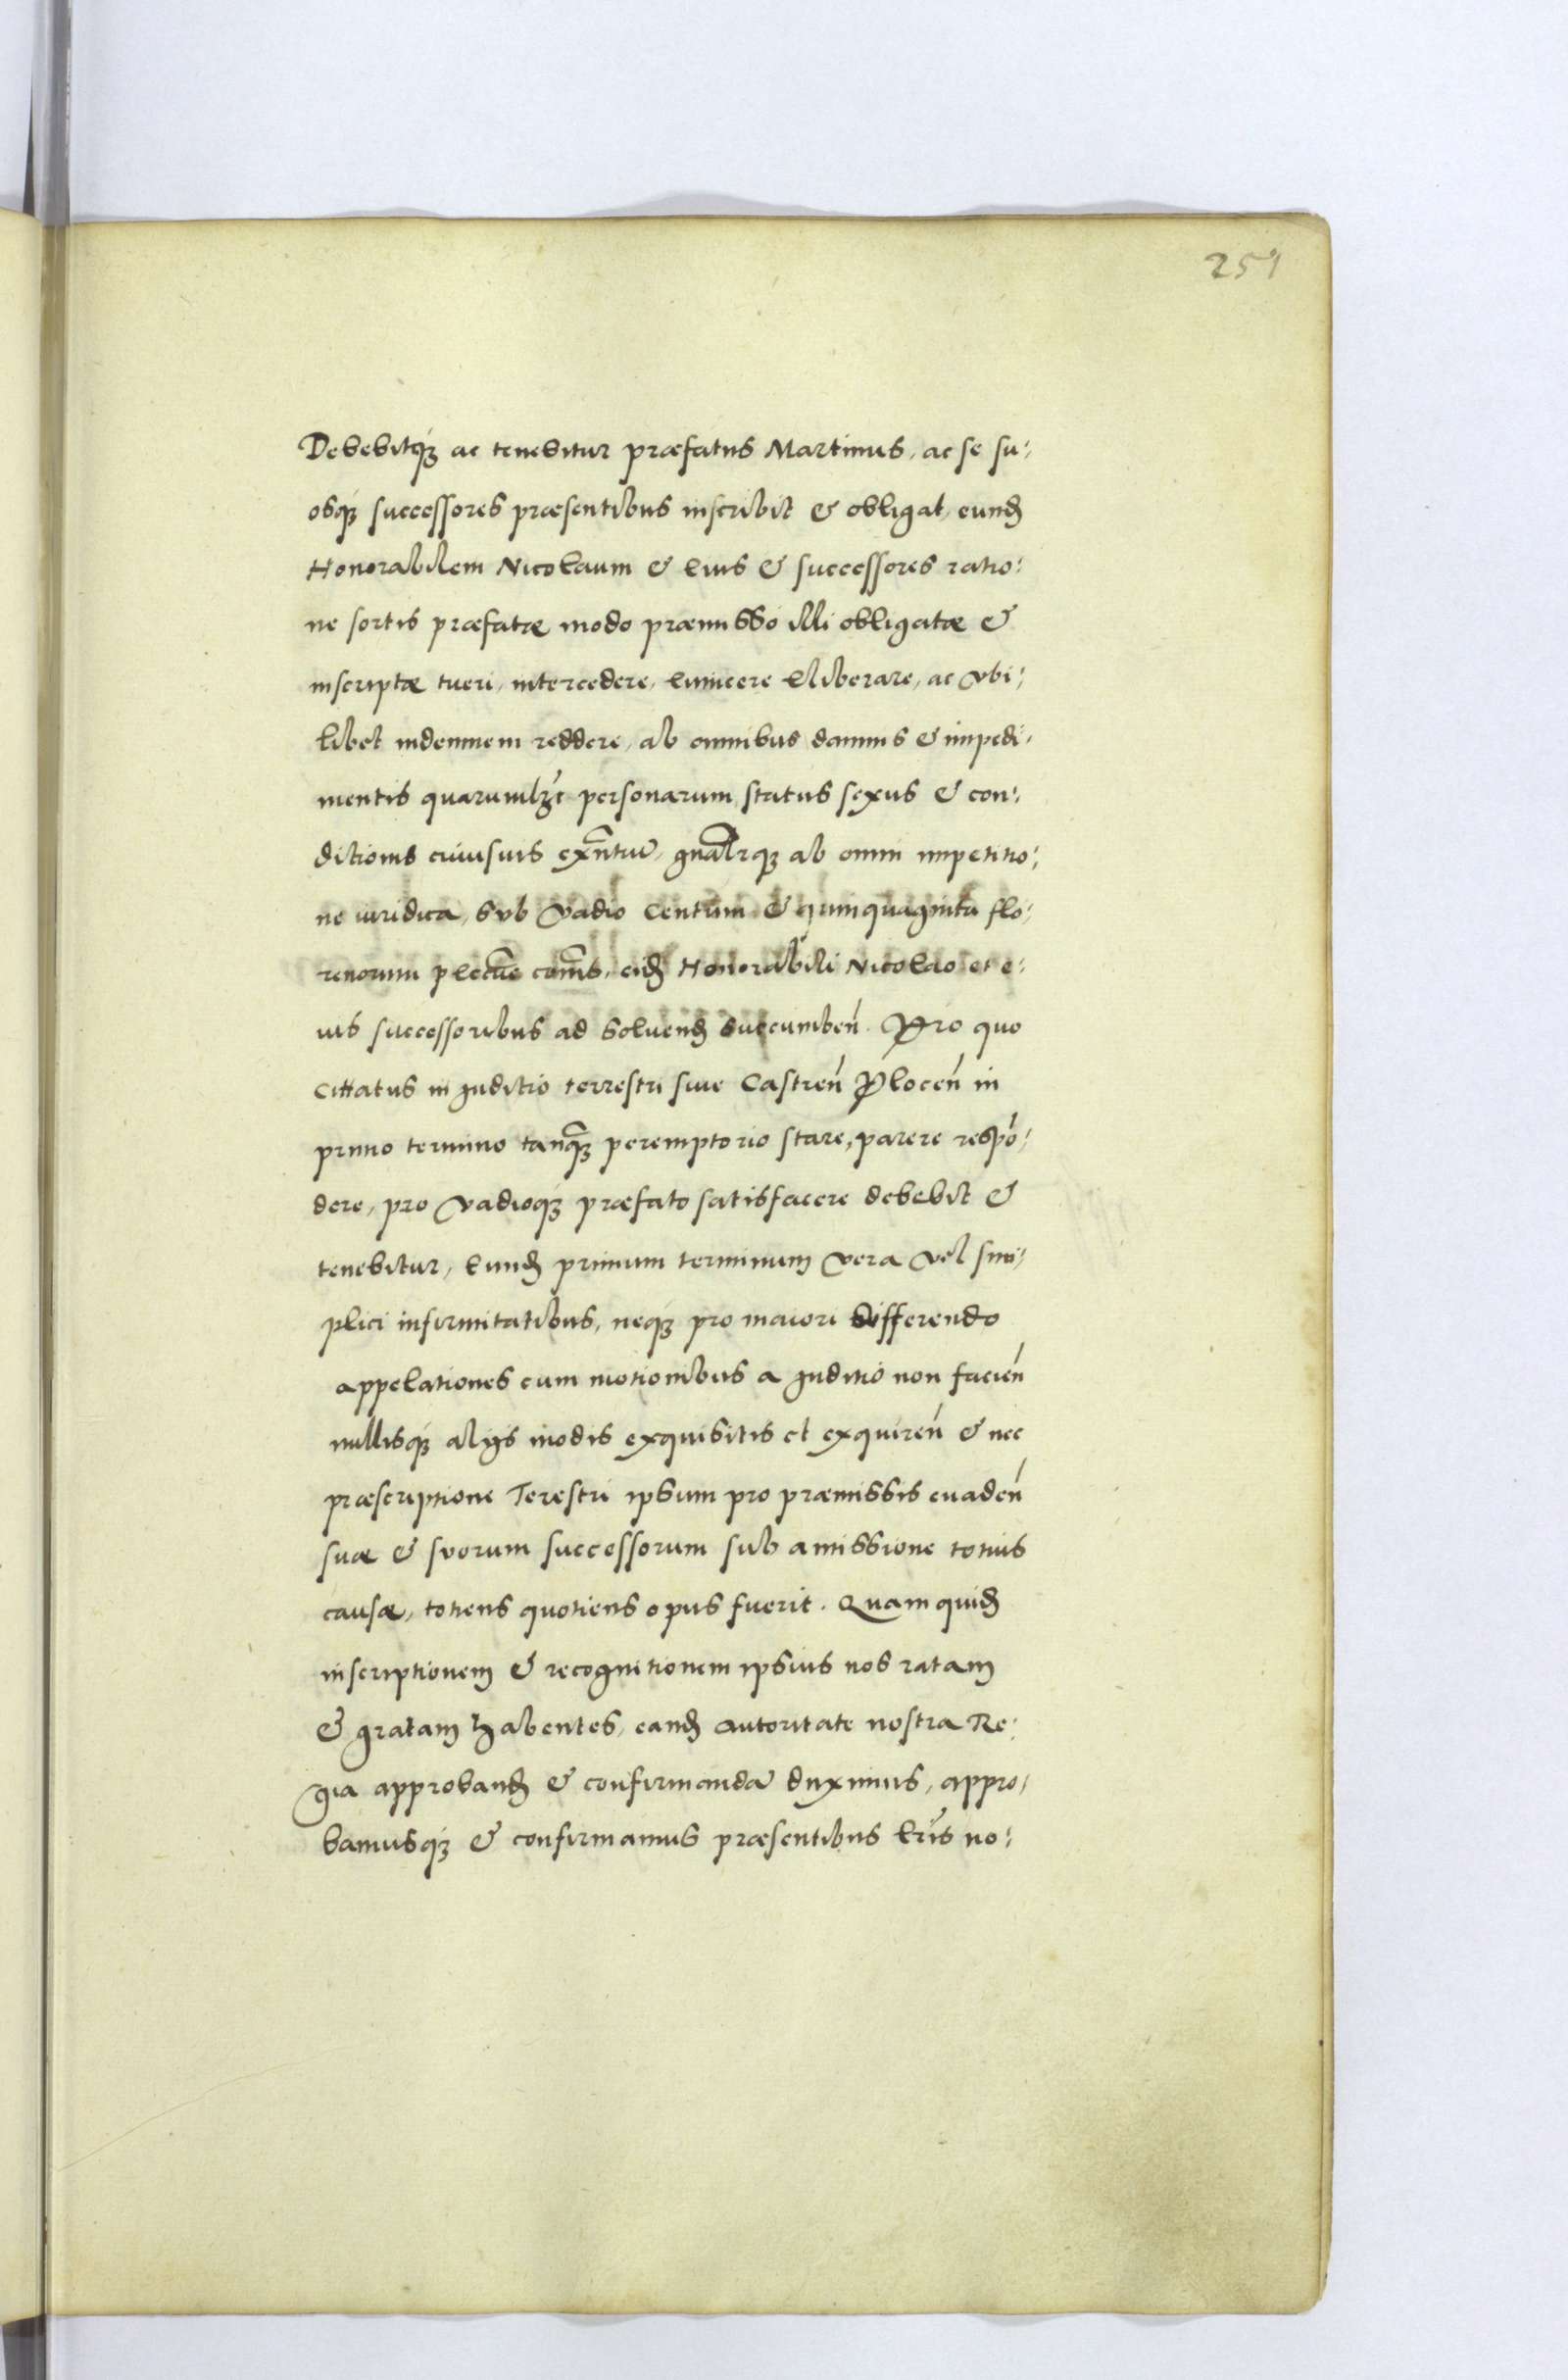 251
Debebitq́ꝫ ac tenebitur præfatus Martinus, ac se su:
osq́ꝫ successores præsentibus inscribit & obligat, eund̃
Honorabilem Nicolaum & Eius & successores ratio:
ne sortis præfatæ modo præmisso illi obligatæ &
inscriptæ tueri, intercedere, Euincere Eliberare, ac vbi:
libet indemnem reddere, ab omnibus damnis & impedi:
mentis quarumlꝫt personarum status sexus & con:
ditionis cuiusuis exñtiũ, gnãlrqꝫ ab omni impetitio:
ne iuridica, sub vadio Centum & quinquaginta flo:
renorum pecũe cõmis, eid̃ Honorabili Nicolao et e:
ius successoribus ad soluend̃ succumben̄. Pro quo
Cittatus in Juditio terrestri siue Castren̄ Plocen̄ in
primo termino tanq̃ꝫ peremptorio stare, parere respõ:
dere, pro vadioq́ꝫ præfato satisfacere debebit &
tenebitur, Eund̃ primum terminum vera vel sim:
plici infirmitatibus, neqꝫ pro maiori differendo
appelationes cum motionibus a Juditio non facien̄
nullisq́ꝫ alijs modis exquisitis et exquiren̄ & nec
præscriptione Terestri ipsum pro præmissis euaden̄
suæ & suorum successorum sub amissione totius
causæ, totiens quotiens opus fuerit. Quam quid̃
inscriptionem & recognitionem ipsius nos ratam
& gratam habentes, eand̃ autoritate nostra Re:
gia approband̃ & confirmandã duximus, appro:
bamusq́ꝫ & confirmamus præsentibus Lr̃is no: